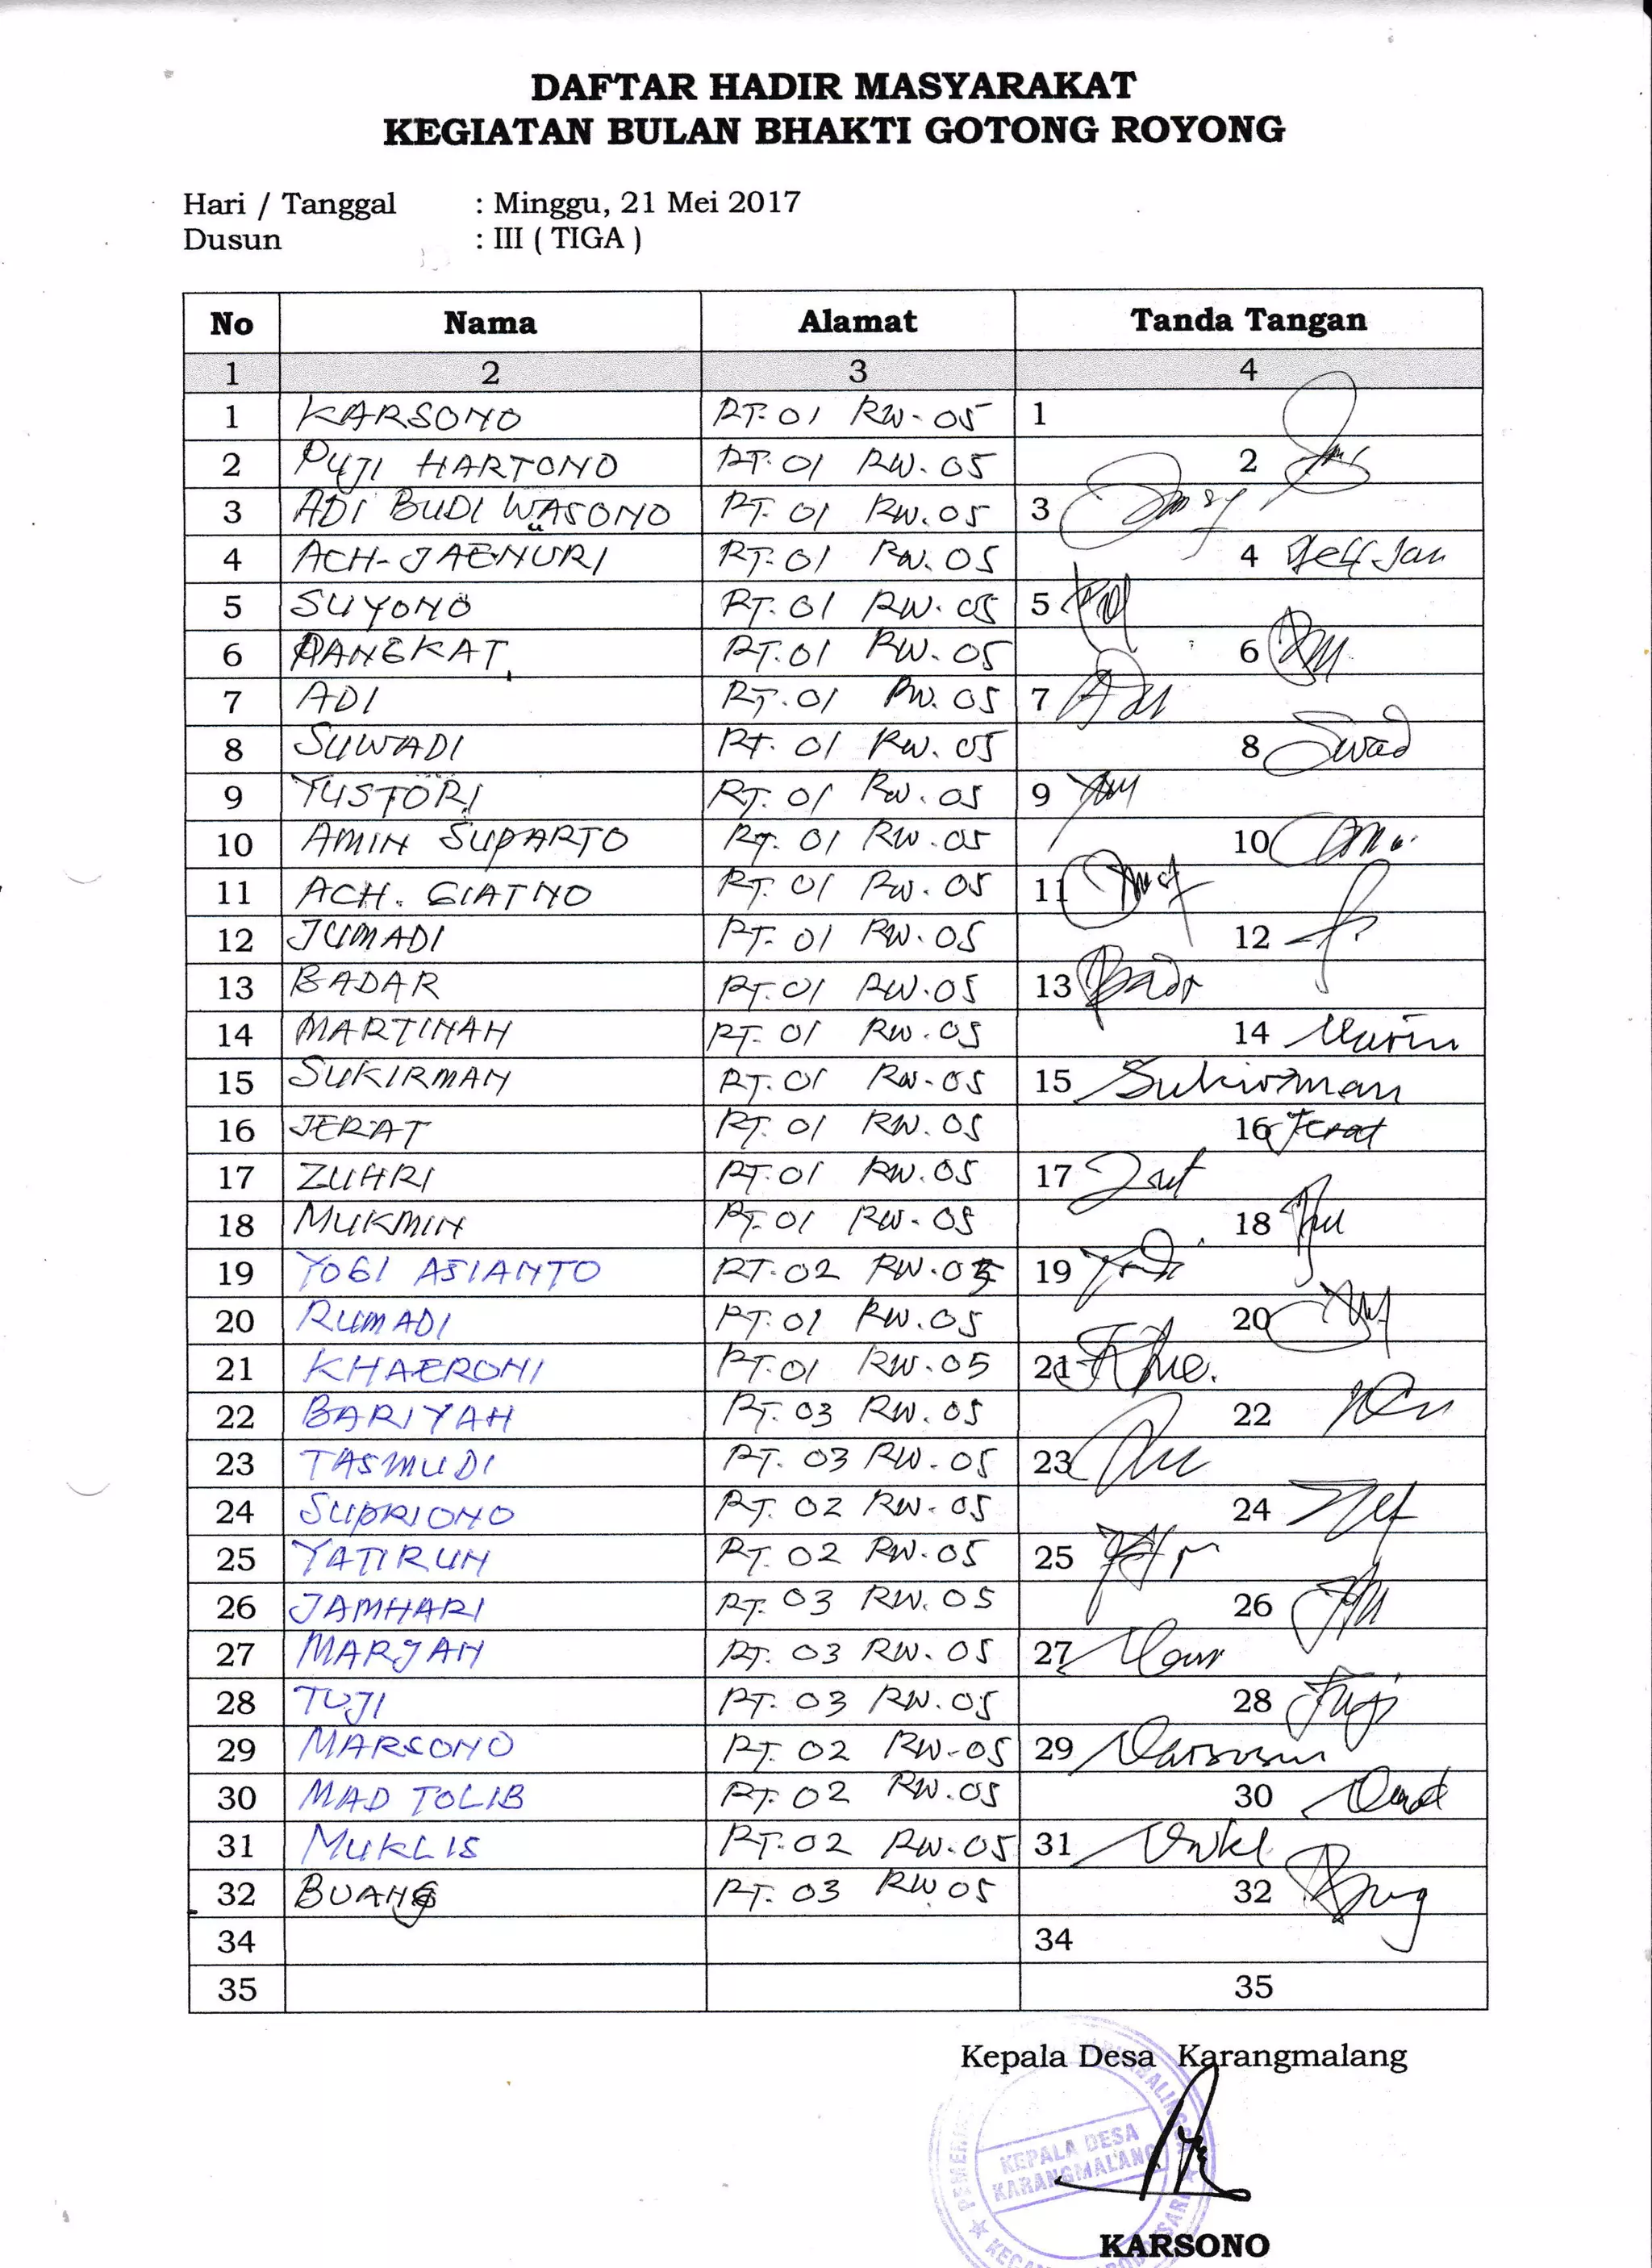 DAFTAR HADIR MASYARAKAT
KEGIATAN BULAN BHAKTI GOTONG ROYONG
Hari / Tanggal : Minggu, 21 Mei 2017
Dusun : III ( TIGA )
No Nama Alamat Tanda Tangan
1 2 3 4
1 KARSONO RT. 01 RW. 05 1
2 PUJI HARTONO RT. 01 RW. 05 2
3 ADI BUDI WASONO RT. 01 RW. 05 3
4 ACH. JAENURI RT. 01 RW. 05 4
5 SUYONO RT. 01 RW. 05 5
6 PANGKAT RT. 01 RW. 05 6
7 ADI RT. 01 RW. 05 7
8 SUWADI RT. 01 RW. 05 8 Suwad
9 TUSTORI RT. 01 RW. 05 9
10 AMIN SUPARTO RT. 01 RW. 05 10
11 ACH. GIATNO RT. 01 RW. 05 11
12 JUMADI RT. 01 RW. 05 12
13 BADAR RT. 01 RW. 05 13
14 MARTINAH RT. 01 RW. 05 14
15 SUKIRMAN RT. 01 RW. 05 15 Sukirman
16 JERAT RT. 01 RW. 05 16 Jerat
17 ZUHRI RT. 01 RW. 05 17
18 MUKMIN RT. 01 RW. 05 18
19 YOGI ASIANTO RT. 02 RW. 05 19
20 RUMADI RT. 01 RW. 05 20
21 KHAERONI RT. 01 RW. 05 21
22 BARIYAH RT. 03 RW. 05 22
23 TASMUDI RT. 03 RW. 05 23
24 SUPRIONO RT. 02 RW. 05 24
25 YATIRUN RT. 02 RW. 05 25
26 JAMHARI RT. 03 RW. 05 26
27 MARJAN RT. 03 RW. 05 27
28 TUJI RT. 03 RW. 05 28
29 MARSONO RT. 02 RW. 05 29
30 MAD TOLIB RT. 02 RW. 05 30
31 MUKLIS RT. 02 RW. 05 31
32 BUANG RT. 03 RW 05 32
34 34
35 35
Kepala Desa Karangmalang
KEPALA DESA
KARANGMALANG
KARSONO